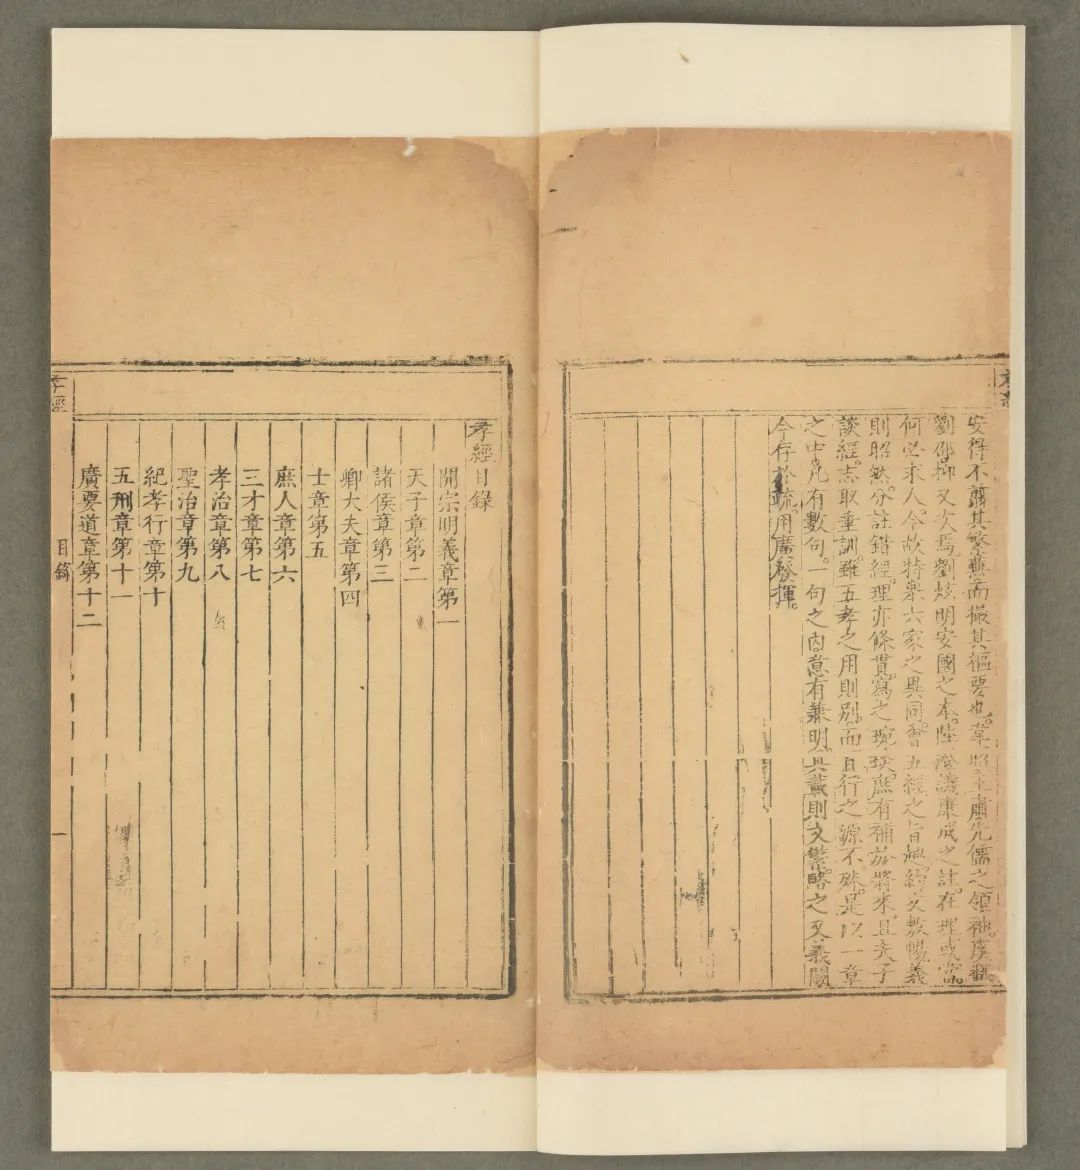 安得不翦其繁蕪而撮其樞要也韋昭王肅先儒之領袖虞翻
劉邵抑又次焉劉炫明安國之本陸澄譏康成之註在理或當
何必求人今故特舉六家之異同會五經之旨趣約文敷暢義
則昭然分註錯經理亦條貫寫之琬琰庶有補於將來且夫子
談經志取垂訓雖五孝之用則别而百行之源不殊是以一章
之中凡有數句一句之内意有兼明具載則文繁略之又義闕
今存於疏用廣發揮
孝經目錄
開宗明義章第一
天子章第二
諸侯章第三
卿大夫章第四
士章第五
庶人章第六
三才章第七
孝治章第八
聖治章第九
紀孝行章第十
五刑章第十一
廣要道章第十二
孝經
目錄
一